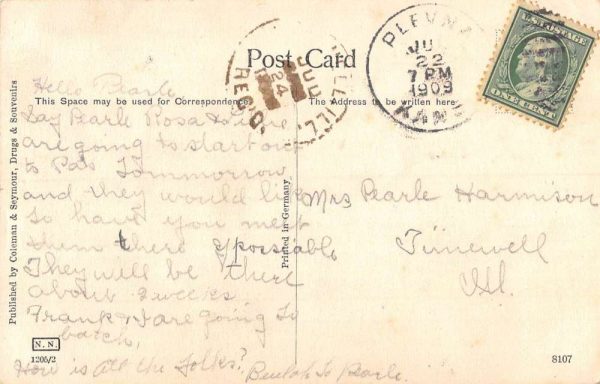 Post Card
This Space may be used for Correspondence
The Address to be written here
PLEVNA
JU
22
7 PM
1909
KANS
U.S. POSTAGE
ONE CENT
24
REC'D
Hello Pearle
Say Pearle Rosa &
are going to start out
to Pa's Tommorrow
and they would like
to have you meet
them there if possiable
They will be there
about 2 weeks
Frank & I are going to
batch,
How is all the folks?
Beulah to Pearle.
Mrs Pearle Harmison
Timewell
Ill.
Published by Coleman & Seymour, Drugs & Souvenirs
Printed in Germany
N. N.
1205/2
8107